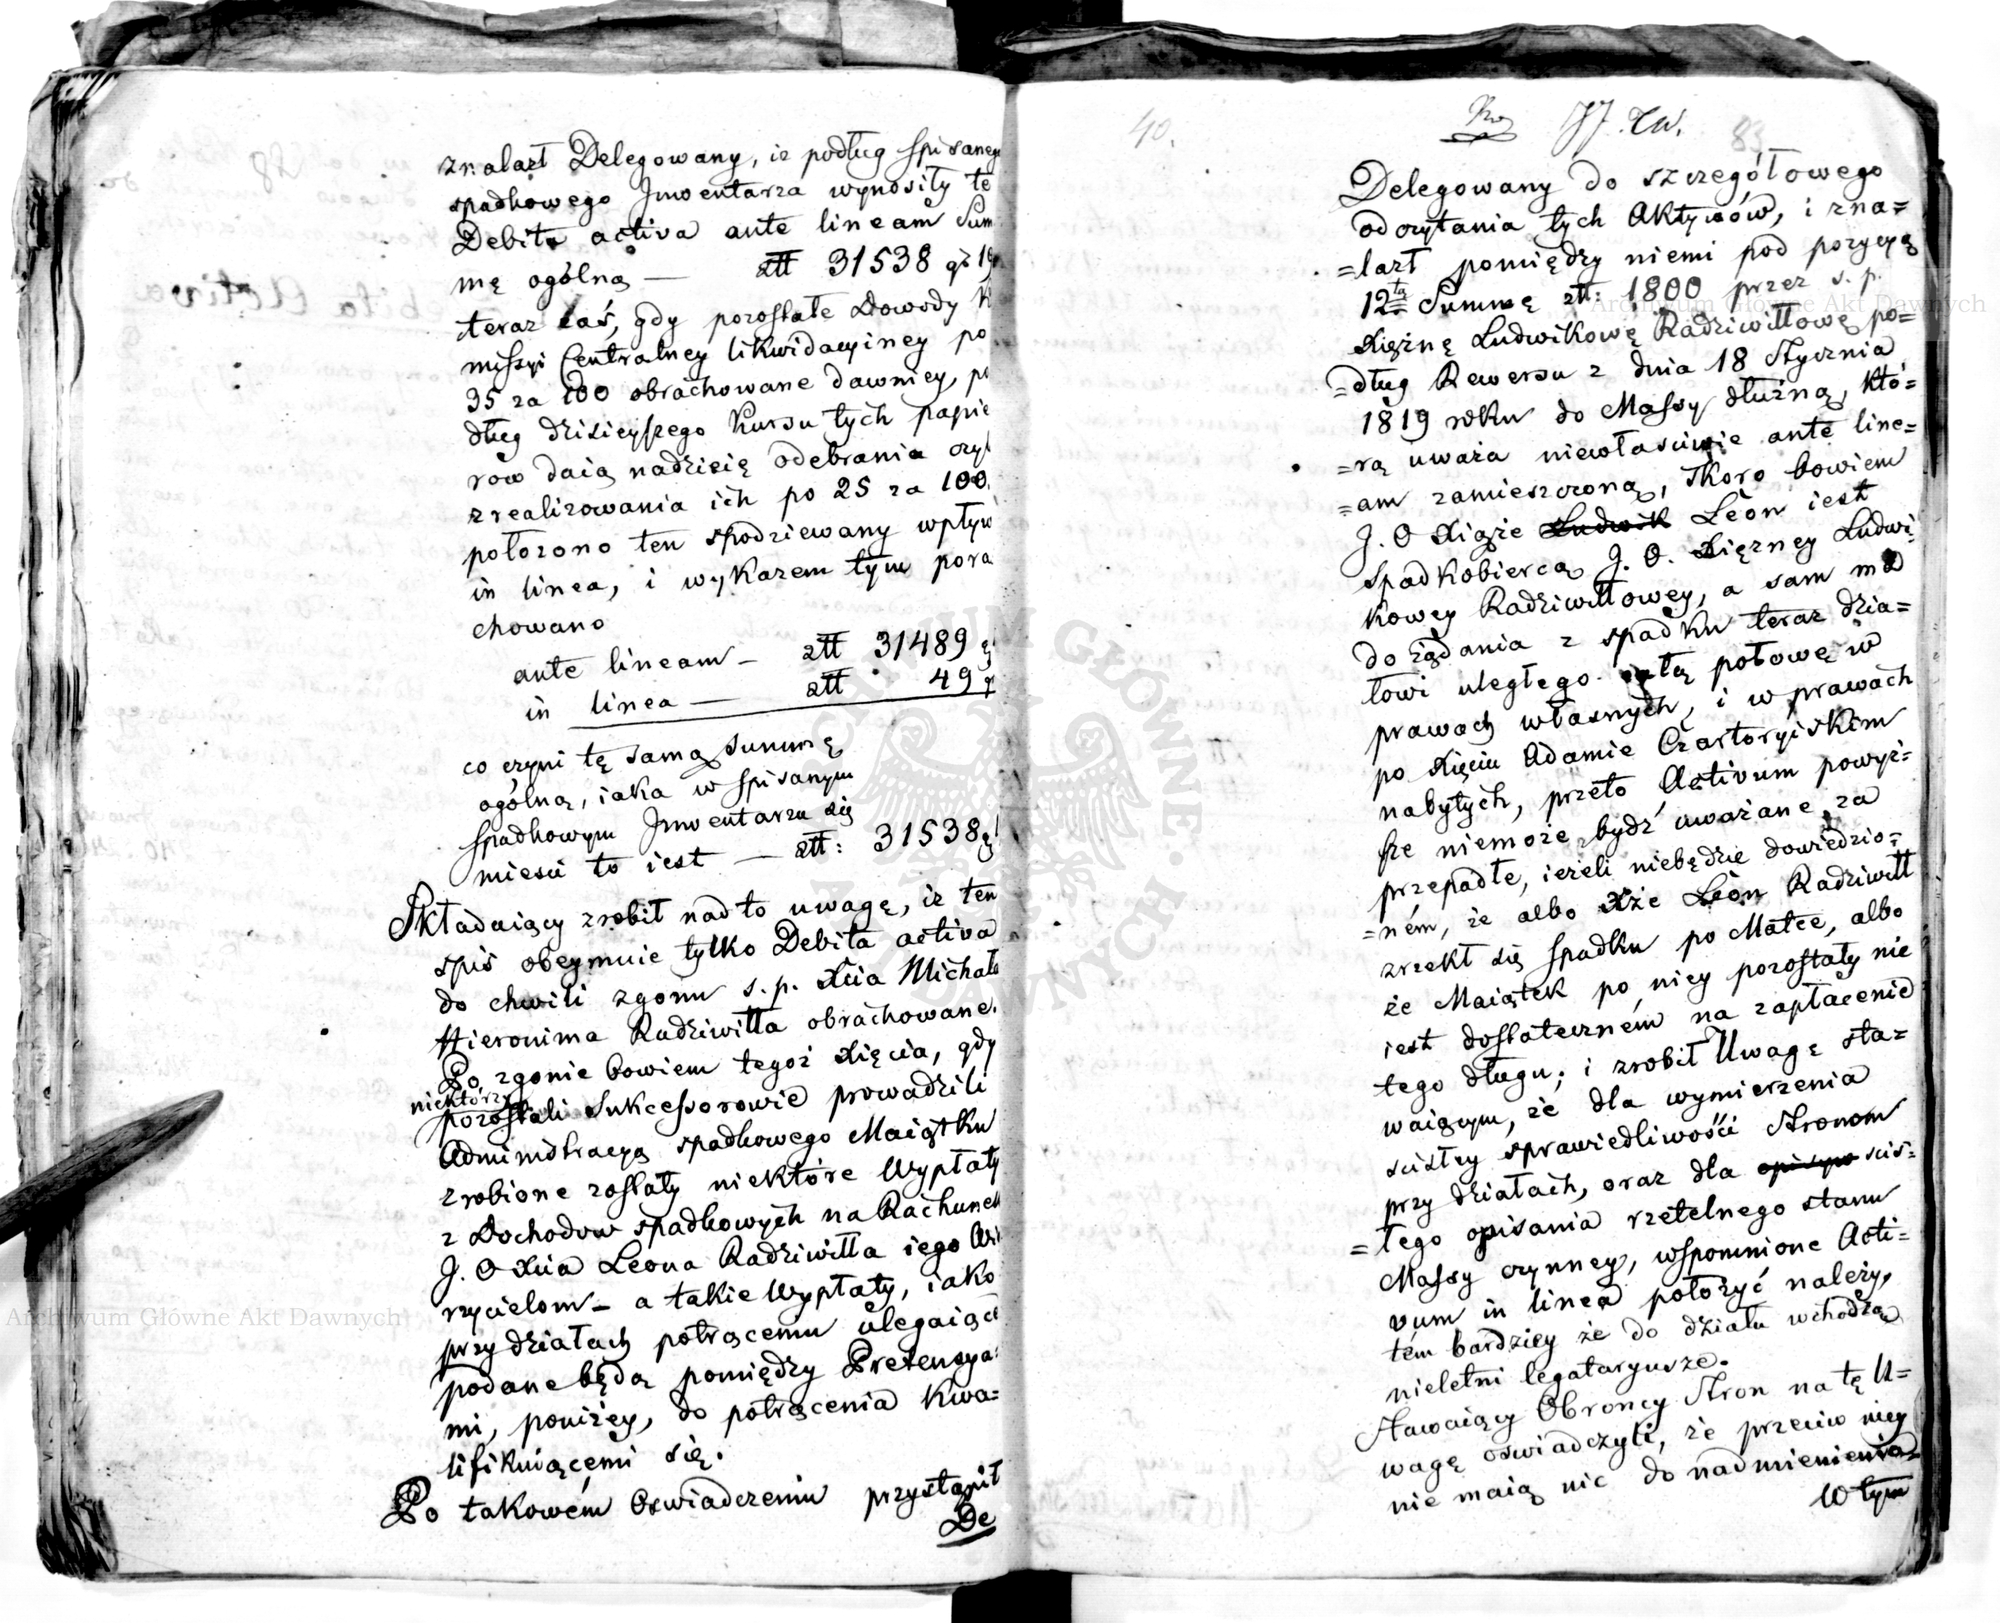 znalazł Delegowany, iz podług spisaneg
spadkowego Jnwentarza wynosiły te
Debita activa ante lineam Sum
mę ogólną — złł 31538 gr 19
teraz zaś, gdy pozostałe Dowody K
missyi Centralney likwidacyiney po
35 za 100 obrachowane dawniey, po
dług dzisieyszego Kursu tych papie
row daią nadzieię odebrania czyl
zrealizowania ich po 25 za 100.
położono ten spodziewany wpływ
in linea, i wykazem tym pora
chowano
ante lineam — złł 31489 g
in linea — złł 49 g
co czyni tę samą summę
ogólną, iaka w spisanym
spadkowym Jnwentarzu się
mieści to iest — złł: 31538 g
Składaiący zrobił nadto uwagę, iz ten
spis obeymuie tylko Debita activa
do chwili zgonu s. p. Xcia Michała
Hieronima Radziwiłła obrachowane.
Po zgonie bowiem tegoż Xięcia, gdy
niektórzy
pozostali Sukcessorowie prowadzili
Administracyą spadkowego Maiątku
zrobione zostały niektóre Wypłaty
z Dochodow spadkowych na Rachunek
J. O Xcia Leona Radziwiłła iego Wie
rzycielom — a takie Wypłaty, iako
przy działach potrącemu ulegaiące
podane będą pomiędzy Pretensya=
mi, poniżey, do potrącenia Kwa=
lifikuiącemi się.
Po takowém Oswiadczeniu przystąpił
De
40. 83
Delegowany do szczegółowego
odczytania tych Aktywów, i zna=
=lazł pomiędzy niemi pod pozycyą
12tą Summę złł: 1800 przez s. p.
Xiężnę Ludwikowę Radziwiłłowę po=
=dług Rewersu z dnia 18 Stycznia
1819 roku do Massy dłużną, któ=
=rą uważa niewłaściwie ante line=
=am zamieszczoną, skoro bowiem
J. O Xiąże Ludwik Léon iest
spadkobiercą J. O. Xiężney Ludwi=
kowey Radziwiłłowey, a sam ma
do żądania z spadku teraz dzia=
łowi uległego całą połowę w
prawach własnych, i w prawach
po Xięciu Adamie Czartoryiskim
nabytych, przeto Activum powyż=
sze niemoże bydź uważane za
przepadłe, ieżeli niebędzie dowiedzio=
=ném, że albo Xże Léon Radziwiłł
zrzekł się spadku po Matce, albo
że Maiątek po niey pozostały nie
iest dostateczném na zapłacenie
tego długu; i zrobił Uwagę sta=
waiącym, że dla wymierzenia
scisłey sprawiedliwości Stronom
przy działach, oraz dla opisyw scis=
=łego opisania rzetelnego stanu
Massy czynney, wspomnione Acti=
vum in linea położyć należy,
tém bardziey że do działu wchodzą
nieletni legataryusze.
Stawaiący Obroncy Stron na tę U=
wagę oswiadczyli, że przeciw niey
nie maią nic do nadmienienia
W tym